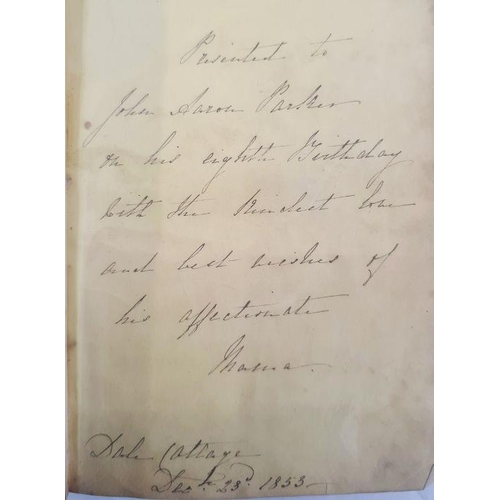 Presented to
John Aaron Parker
on his eighth Birthday
with the kindest love
and best wishes of
his affectionate
Mama.
Dale Cottage
Decr. 23d. 1853